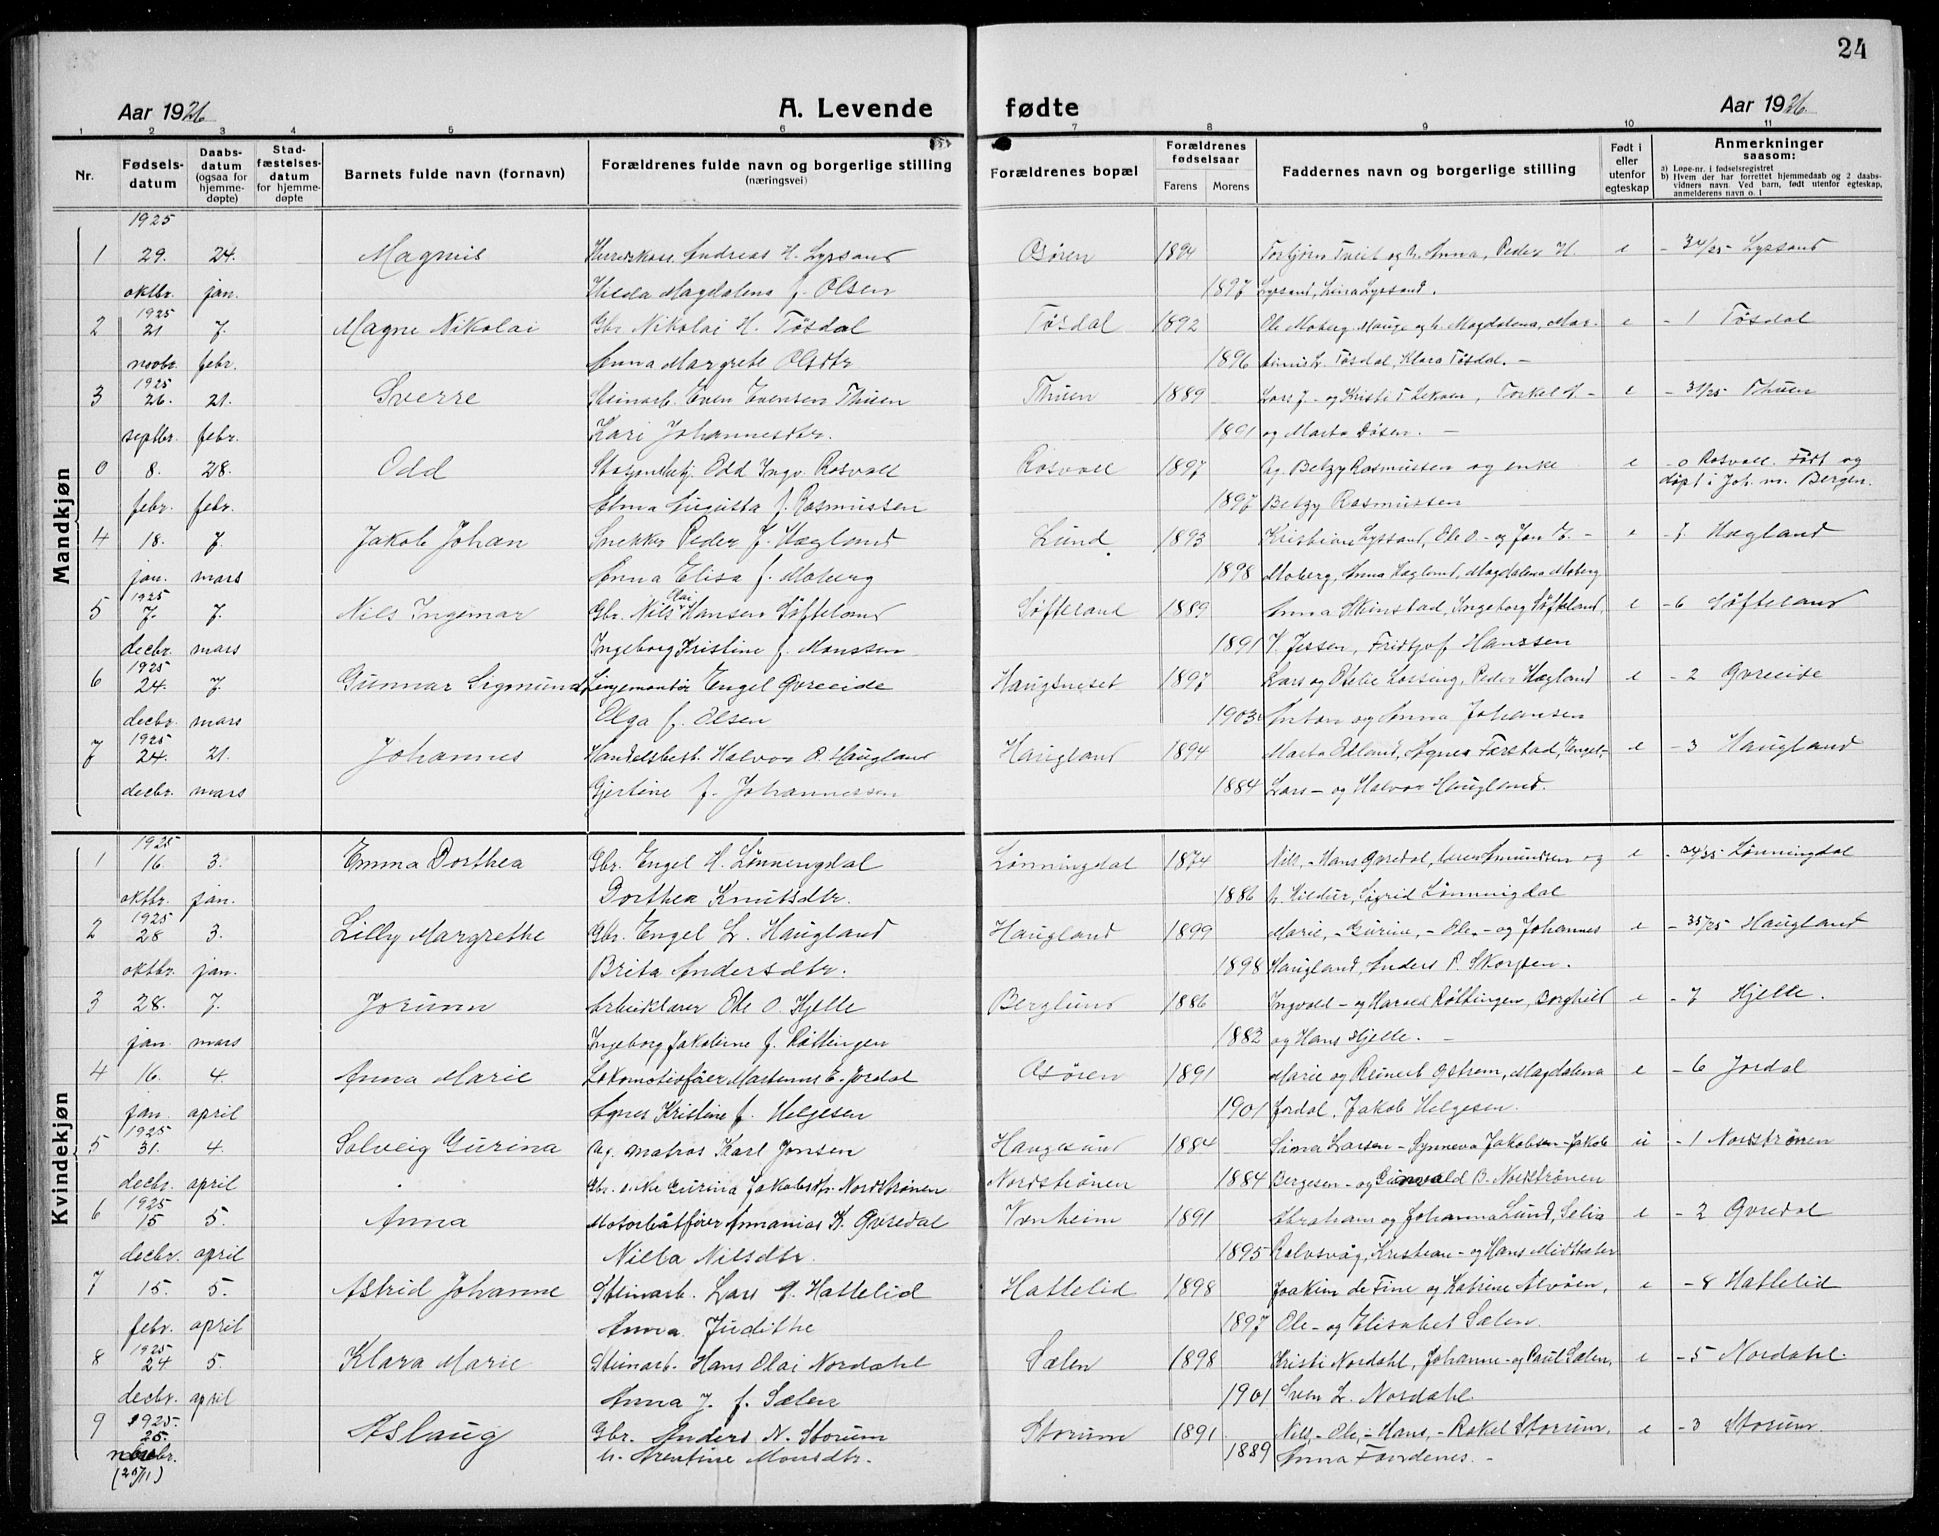 24
Aar 1926
A. Levende fødte
Aar 1926
1 2 3 4 5 6 7 8 9 10 11
Nr.
Fødsels-datum
Daabs-datum (ogsaa for hjemme-døpte)
Stad-fæstelses-datum for hjemme-døpte
Barnets fulde navn (fornavn)
Forældrenes fulde navn og borgerlige stilling (næringsvei)
Forældrenes bopæl
Forældrenes fødselsaar
Farens Morens
Faddernes navn og borgerlige stilling
Født i eller utenfor egteskap
Anmerkninger saasom:
a) Løpe-nr. i fødselsregistret
b) Hvem der har forrettet hjemmedaab og 2 daabs-vidners navn. Ved barn, født utenfor egteskap, anmelderens navn o. l
Mandkjøn
1925
1 29. 24. Magnus Andreas H. Lyssand Osøren 1894 Torbjørn Tveit og h. Anna, Peder H. e - 34/25 Lyssand
oktbr. jan. Hilda Magdalena f. Olsen 1897 Lyssand, Lina Lyssand.
1925
2 21 7. Magne Nikolai Gbr. Nikolai H. Tøsdal Tøsdal 1892 Ole Moberg Hauge og h. Magdalena, Mar- e - 1 Tøsdal
novbr. febr. Anna Margrete Olsdtr 1896 Tøsdal, Klara Tøsdal. -
1925
3 26. 21. Sverre Steinarb. Even Evensen Thuen Thuen 1889 Lars J- og Kristi T Lekven, Torkel H- e - 31/25 Thuen
septbr. febr. Kari Johannesdtr. 1891 og Marta Døsen. -
0 8. 28. Odd Odd Ingv. Rosvoll Rosvoll 1897 Ag. Betzy Rasmussen og enke e - 0 Rosvoll. Født og
døpt i Joh. m. Bergen.
febr. febr. Alma Augusta f. Rasmussen 1897 Betzy Rasmussen
4 18. 7. Jakob Johan Snekker Peder J. Hægland Lund 1893 Kristian Lyssand, Ole O- og Jon E.- e - 7. Hægland
jan. mars Anna Elisa f. Moberg 1898 Moberg, Anna Hægland, Magdalena Moberg
1925
5 7. 7. Nils Ingemar Gbr. Nils Olai Hansen Søfteland Søfteland 1889 Anna Steinstad, Ingeborg Søfteland, e - 6 Søfteland
decbr. mars Ingeborg Kristine f. Monssen 1891 Jessen, Fridtjof Hanssen
1925
6 24. 7. Gunnar Sigmund Linjemontør Engel Gvreeide Haugsneset 1897 Lars og Otelie Køssing, Peder Hægland e - 2 Gvreeide
decbr. mars Olga f. Olsen 1903 Anton og Anna Johansen
1925
7 24. 21. Johannes Handelsbest. Halvor O. Haugland Haugland 1894 Marta Ødland, Agnes Færstad, Engel- e - 3 Haugland
decbr. mars Gjertine f. Johannessen 1884 Lars- og Halvor Haugland.
Kvindekjøn
1925
1 16 3. Emma Dorthea Gbr. Engel H. Lønningdal Lønningdal 1874 Nils,- Hans Gaasdal, Amundsen og e - 34/25 Lønningdal
oktbr. jan. Dorthea Knutsdtr. 1886 h. Hildur, Sigrid Lønningdal
1925
2 28 3. Lilly Margrethe Gbr. Engel L. Haugland Haugland 1899 Marie,- Gurine,- Ole- og Johannes e - 35/25 Haugland
oktbr. jan. Brita Andersdtr. 1898 Haugland, Anders P. Skorpen.
3 28. 7. Jorunn Ole O. Hjelle Berglund 1886 Ingvald- og Harald Røttingen, Borghild e - 7 Hjelle.
jan. mars Ingeborg Jakobine f. Røttingen 1882 og Hans Hjelle. -
4 16. 4. Anna Marie Lokomotivfører Martinus E. Jordal Osøren 1891 Marie og Reinert Østrem, Magdalena e - 6 Jordal
jan. april Agnes Kristine f. Helgesen 1901 Jordal, Jakob Helgesen.
1925
5 31. 4. Solveig Gurina Ug. matros Karl Jonsen Haugesund 1884 Sina Larsen- Synneva Jakobsen- Jakob u - 1 Nordstrønen
decbr. april Gbr. enke Gurina Jakobsdtr. Nordstrønen Nordstrønen 1884 Bergesen- og Gunvald B. Nordstrønen
1925
6 15 5. Anna Motorbåtfører Annanias K. Gvredal Vænheim 1891 Abraham og Johanna Lund, Selia e - 2 Gvredal
decbr. april Nilla Nilsdtr. 1895 Rolvsvåg, Kristian- og Hans Midtsæter
7 15. 5. Astrid Johanne Steinarb. Lars M. Hattelid Hattelid 1898 Joakim de Fine og Katrine Alvøen, e - 8 Hattelid
febr. april Anna Judithe 1897 Ole- og Elisabet Sælen.
1925
8 24 5. Klara Marie Steinarb. Hans Olai Nordahl Sælen 1898 Kristi Nordahl, Johanne- og Paul Sælen, e - 5 Nordahl.
decbr. april Anna J. f. Sælen 1901 Sven L. Nordahl.
1925
9 25. Aslaug Gbr. Anders N. Storum Storum 1891 Nils,- Ole,- Hans,- Rakel Storum, e - 3 Storum
novbr. h. Arentine Monsdtr. 1889 Anna
(25/11)